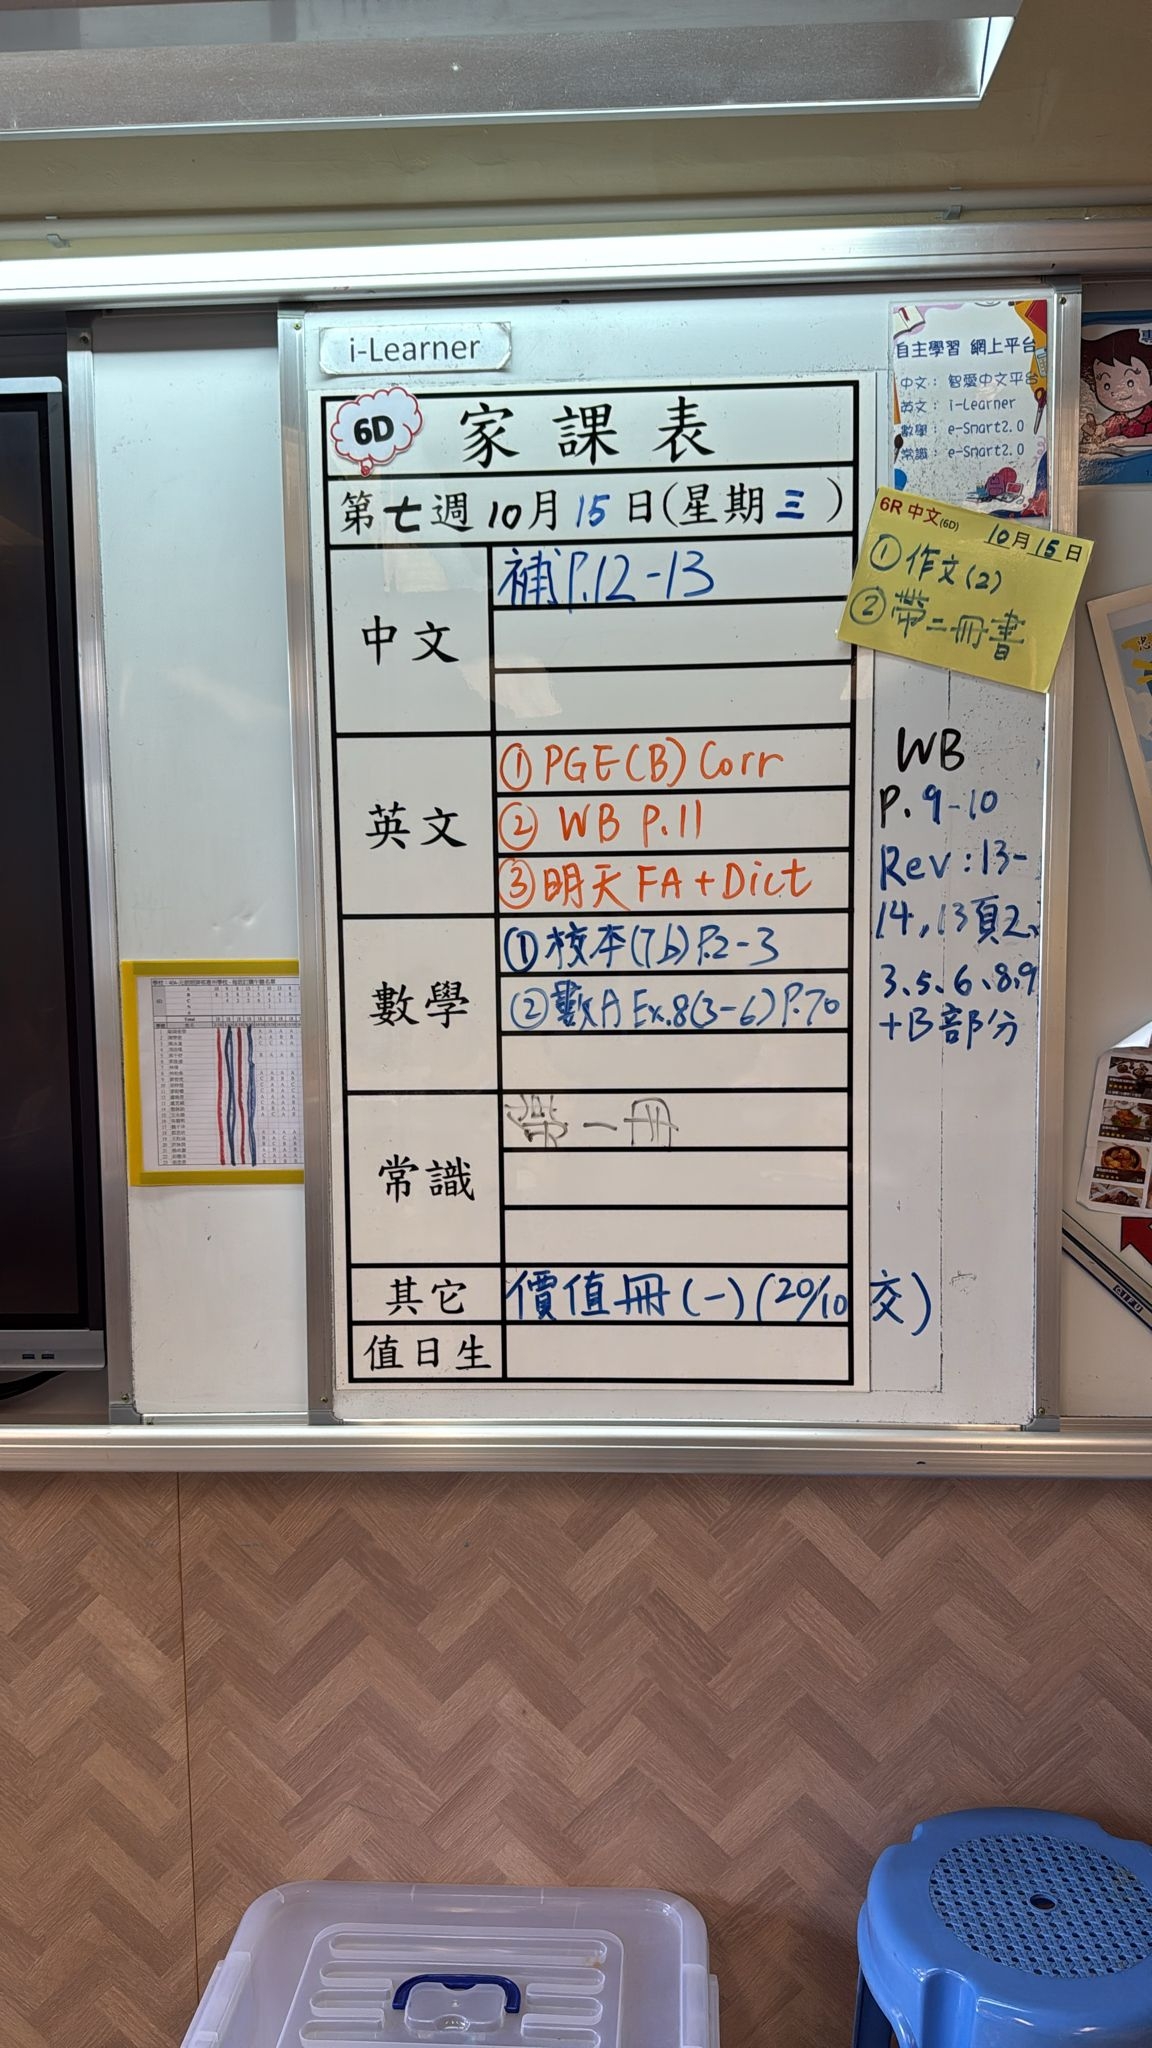 i-Learner
6D 家課表
第七週10月15日(星期三)
中文
補P.12-13
英文
①PGE(B) Corr
② WB P.11
③明天 FA + Dict
數學
①校本(7b) P.2-3
②數A Ex.8(3-6) P.70
常識
帶一冊
其它
價值冊(一)(20/10交)
值日生
自主學習 網上平台
中文： 智愛中文平台
英文： i-Learner
數學： e-Smart2.0
常識： e-Smart2.0
6R 中文(6D)
10月15日
①作文(2)
②帶二冊書
WB
P. 9-10
Rev:13-
14,13頁2、
3、5、6、8、9
+B部分